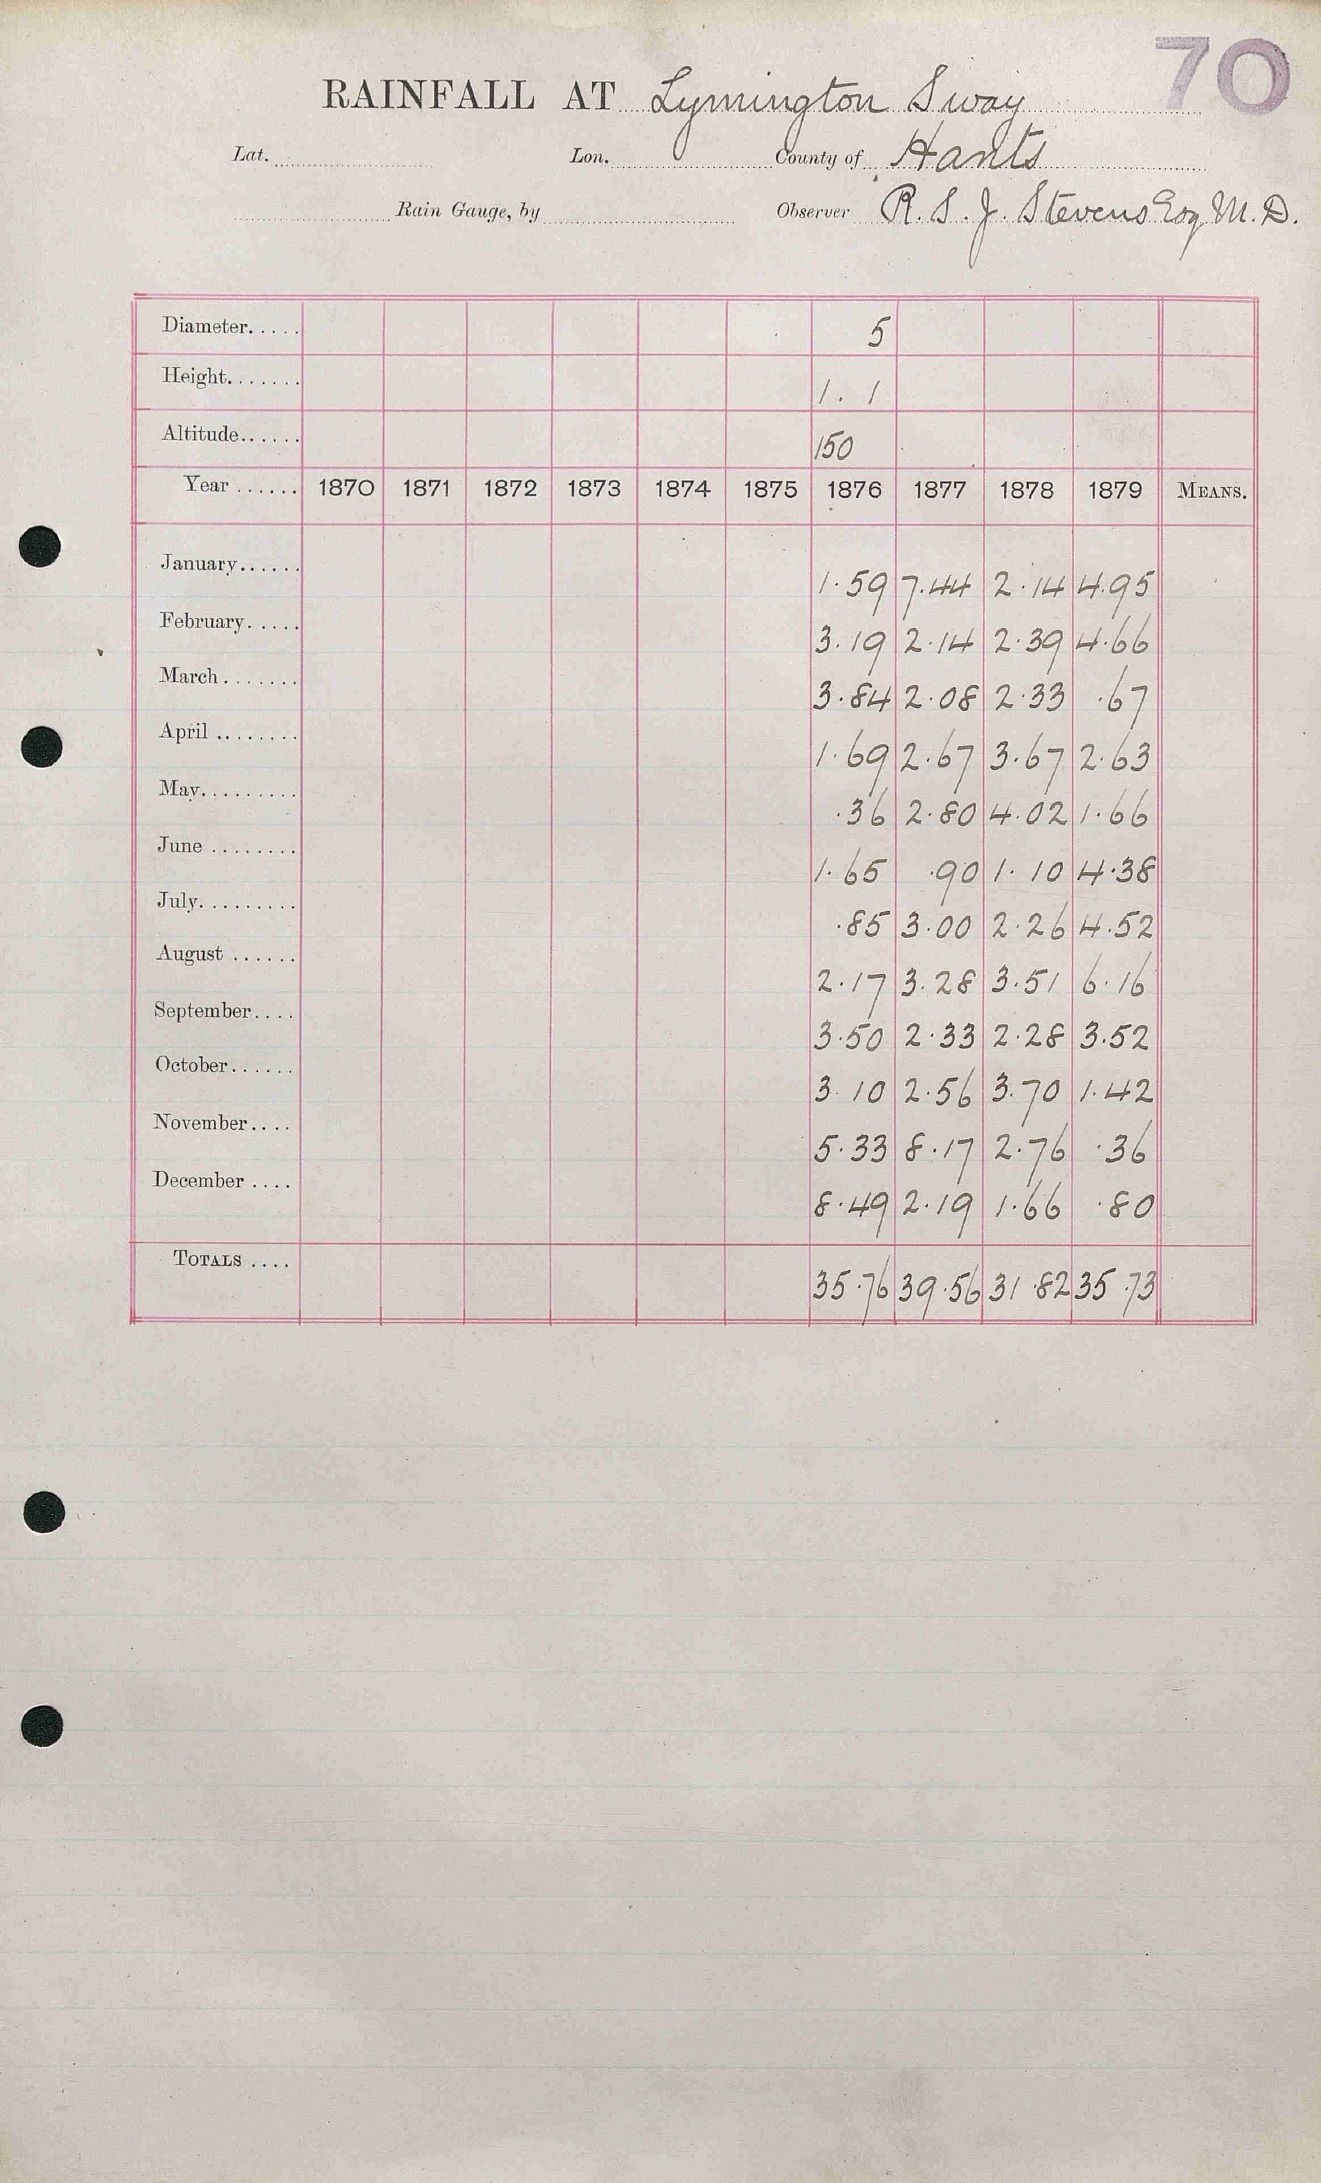 70
RAINFALL AT Lymington Sway
Lat. Lon. County of Hants
Rain Gauge, by Observer R. S. J. Stevens Esq M.D.
Diameter..... 5
Height....... 1. 1
Altitude...... 150
Year ...... 1870 1871 1872 1873 1874 1875 1876 1877 1878 1879 MEANS.
January...... 1.59 7.44 2.14 4.95
February..... 3.19 2.14 2.39 4.66
March....... 3.84 2.08 2.33 .67
April ........ 1.69 2.67 3.67 2.63
May......... .36 2.80 4.02 1.66
June ........ 1.65 .90 1.10 4.38
July......... .85 3.00 2.26 4.52
August ...... 2.17 3.28 3.51 6.16
September.... 3.50 2.33 2.28 3.52
October...... 3.10 2.56 3.70 1.42
November.... 5.33 8.17 2.76 .36
December .... 8.49 2.19 1.66 .80
TOTALS .... 35.76 39.56 31.82 35.73